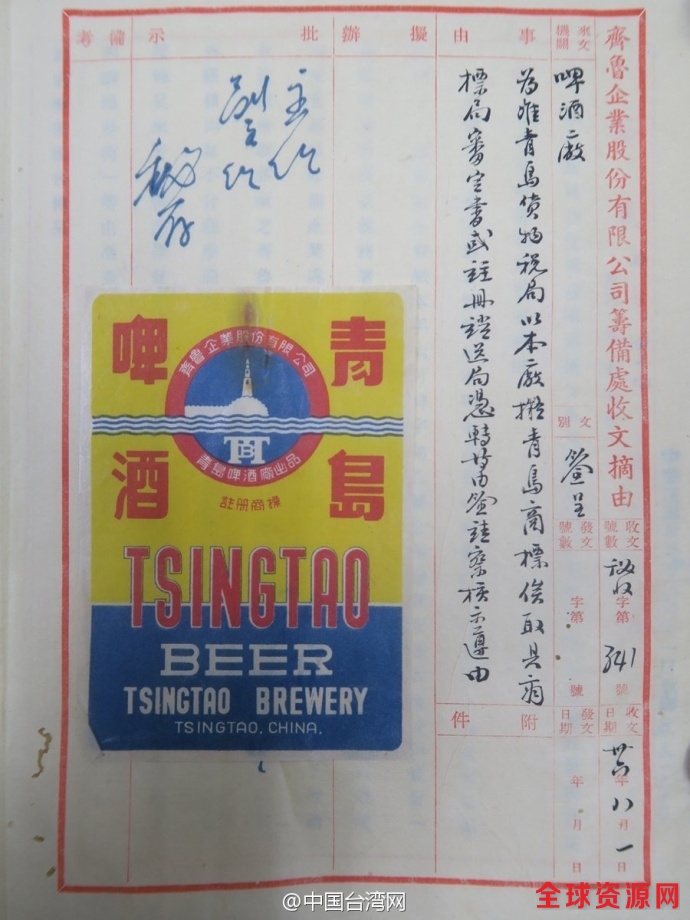 齊魯企業股份有限公司籌備處收文摘由
來文機關
啤酒廠
文別
簽呈
發文號數
字第
號
收文號數
字第
341
號
發文日期
年
月
日
收文日期
年
八月
一日
事
由
為准青島貨物稅局以本廠擬青島商標俟取具商
標局審定書或註冊證送局憑轉
簽請察核示遵由
附
件
擬
辦
批
示
備
考
青島
啤酒
齊魯企業股份有限公司
TB
青島啤酒廠出品
註冊商標
TSINGTAO
BEER
TSINGTAO BREWERY
TSINGTAO, CHINA.
@中国台湾网
全球资源网